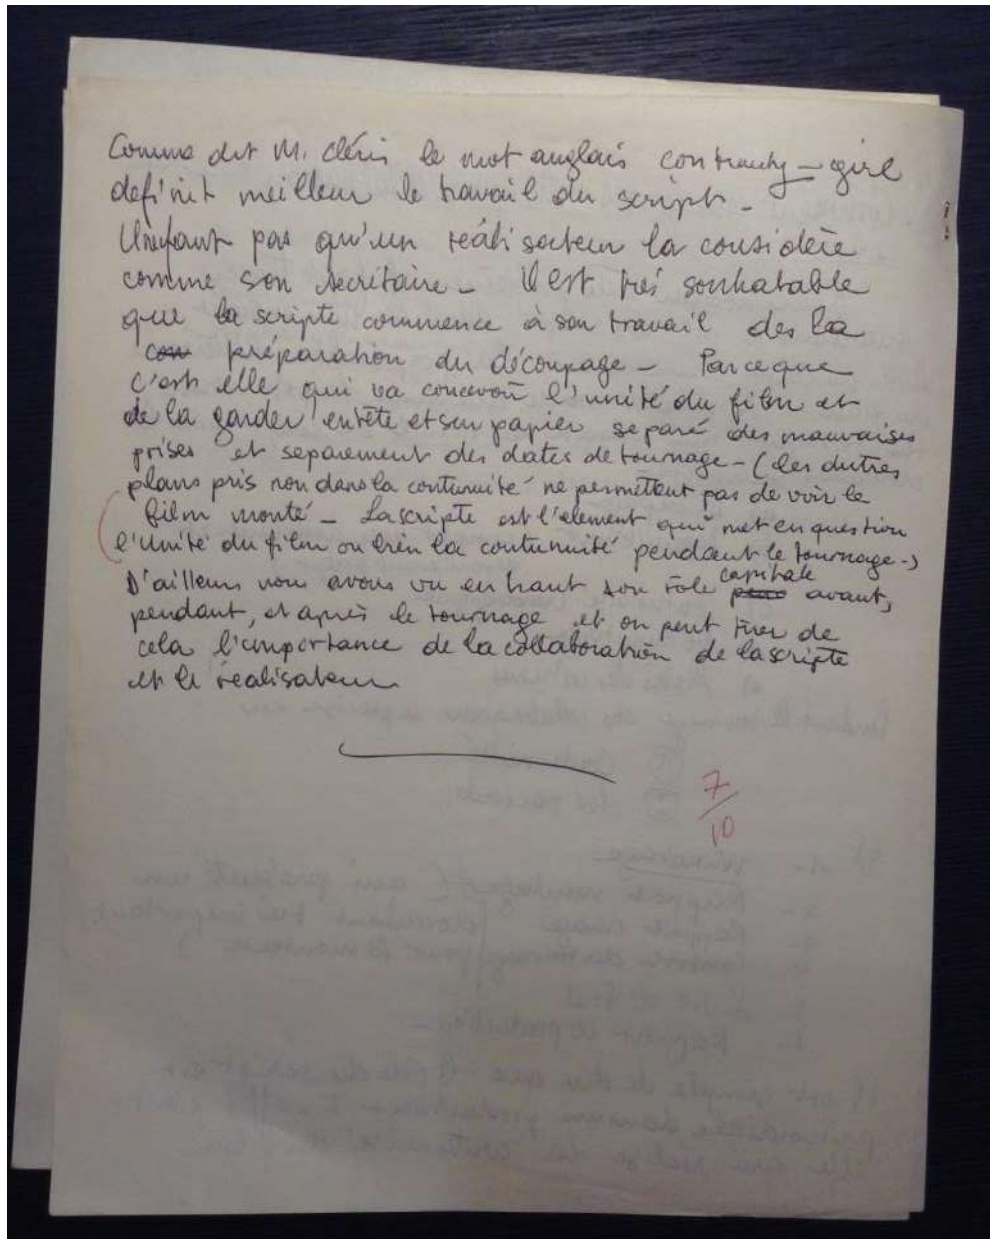 Comme dit M. Cléris le mot anglais contrauty-girl
définit meilleur le travail du script -
Il ne faut pas qu'un réalisateur la considère
comme son secrétaire - il est très souhatable
que la scripte commence à son travail des la
préparation du découpage - Parceque
c'est elle qui va concevoir l'unité du film et
de la garder en tête et sur papier separé des mauvaises
prises et separement des dates de tournage - (les autres
plans pris non dans la contunuité ne permettent pas de voir le
film monté - La scripte est l'element qui met en question
l'Unité du film ou bien la contunuité pendant le tournage -)
D'ailleurs nous avons vu en haut son rôle capitale avant,
pendant, et après le tournage et on peut tirer de
cela l'importance de la collaboration de la scripte
et le réalisateur
7/10